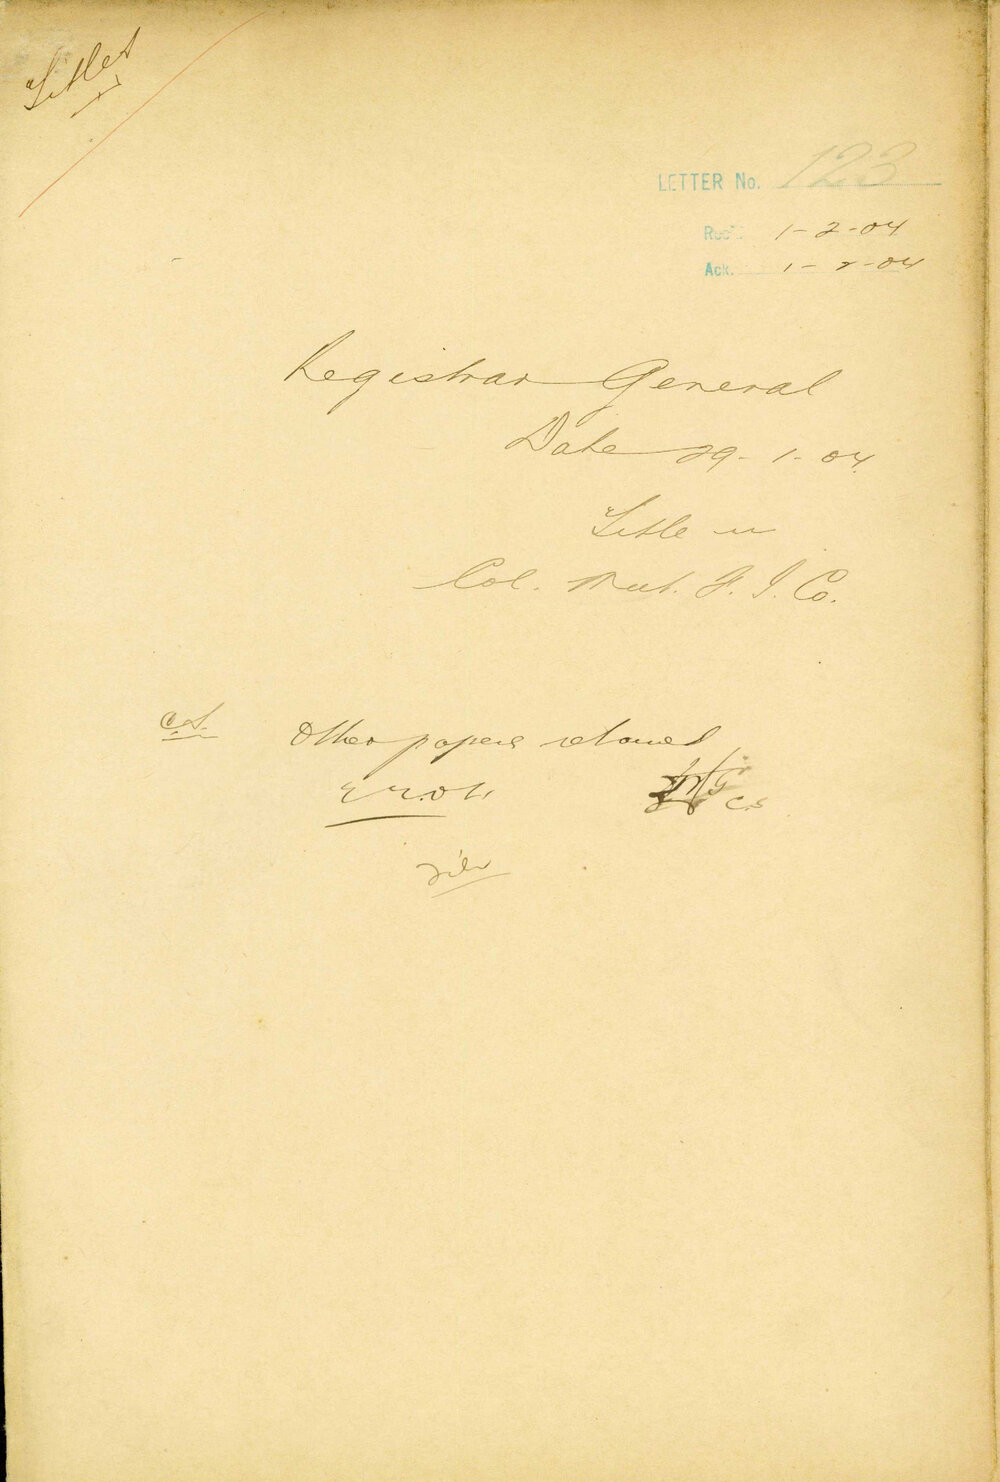 Titles
LETTER No. 123
Rec'd. 1-2-04
Ack. 1-2-04
Registrar General
Date 29-1-04.
Title in
Col. Mut. F. I. Co.
C.S. Other papers returned
2.2.04.
C.S
File